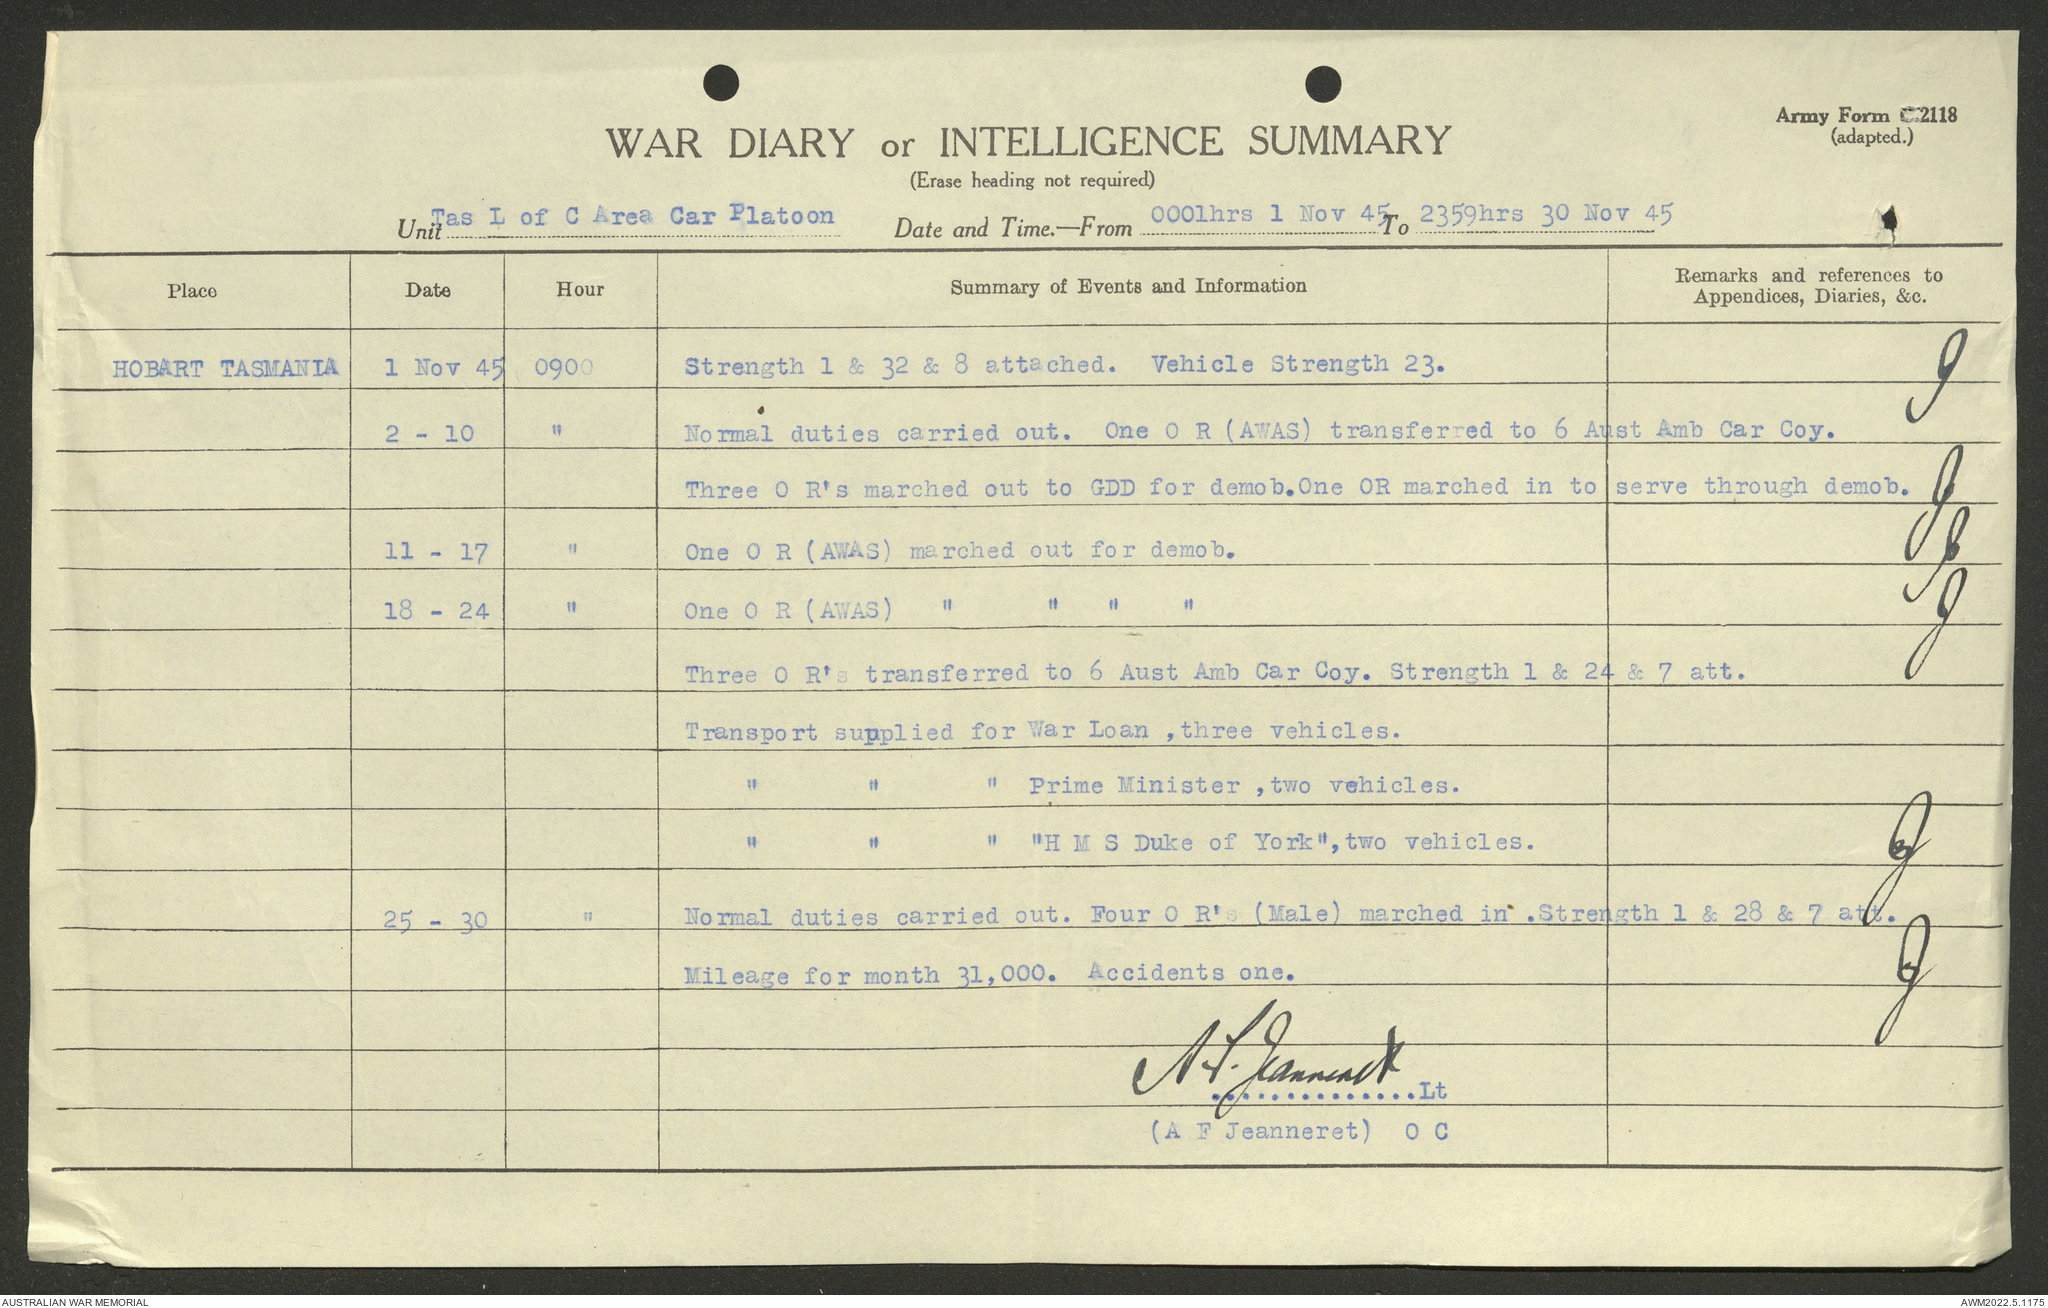 Army Form C.2118
(adapted.)
WAR DIARY or INTELLIGENCE SUMMARY
(Erase heading not required)
Unit Tas L of C Area Car Platoon Date and Time.—From 0001hrs 1 Nov 45 To 2359hrs 30 Nov 45
Place Date Hour Summary of Events and Information Remarks and references to Appendices, Diaries, &c.
HOBART TASMANIA 1 Nov 45 0900 Strength 1 & 32 & 8 attached. Vehicle Strength 23.
2 - 10 " Normal duties carried out. One O R (AWAS) transferred to 6 Aust Amb Car Coy.
Three O R's marched out to GDD for demob.One OR marched in to serve through demob.
11 - 17 " One O R (AWAS) marched out for demob.
18 - 24 " One O R (AWAS) " " " "
Three O R's transferred to 6 Aust Amb Car Coy. Strength 1 & 24 & 7 att.
Transport supplied for War Loan ,three vehicles.
" " " Prime Minister ,two vehicles.
" " " "H M S Duke of York",two vehicles.
25 - 30 " Normal duties carried out. Four O R's (Male) marched in .Strength 1 & 28 & 7 att.
Mileage for month 31,000. Accidents one.
A. F. Jeanneret
..............Lt
(A F Jeanneret) O C
AUSTRALIAN WAR MEMORIAL
AWM2022.5.1175